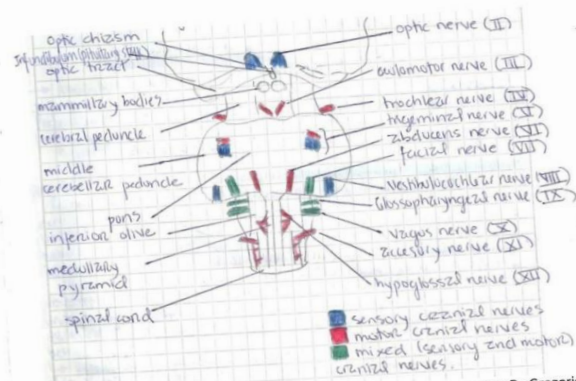 optic chizsm
Infundibulum (pituitary
optic tract
mammillary bodies
cerebral peduncle
middle
cerebellar peduncle
pons
inferior olive
medullary
pyramid
spinal cord
optic nerve (II)
oculomotor nerve (III)
trochlear nerve (IV)
trigeminal nerve (V)
abducens nerve (VI)
facial nerve (VII)
vestibulocochlear nerve (VIII)
Glossopharyngeal nerve (IX)
vagus nerve (X)
accesory nerve (XI)
hypoglossal nerve (XII)
sensory cranial nerves
motor cranial nerves
mixed (sensory and motor)
cranial nerves.